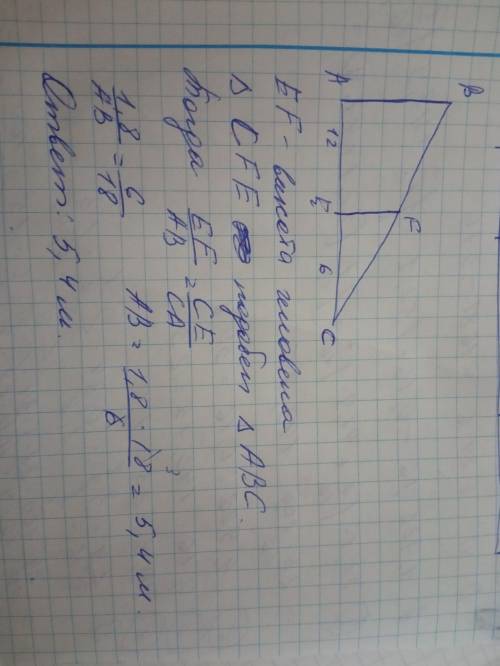 B
A 12 E 6 C
F
EF - высота человека
Δ CFE подобен Δ ABC.
Тогда EF/AB = CE/CA
1,8/AB = 6/18 AB = 1,8 · 18/6 = 5,4 м.
3
Ответ: 5,4 м.